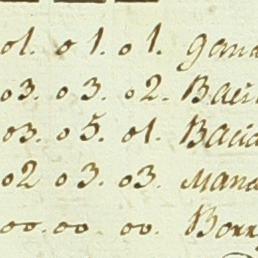 01. 01. 01. gana
03. 03. 02. Baei
03. 05. 01. Baca
02 03. 03. Mana
00. 00. 00. Borr